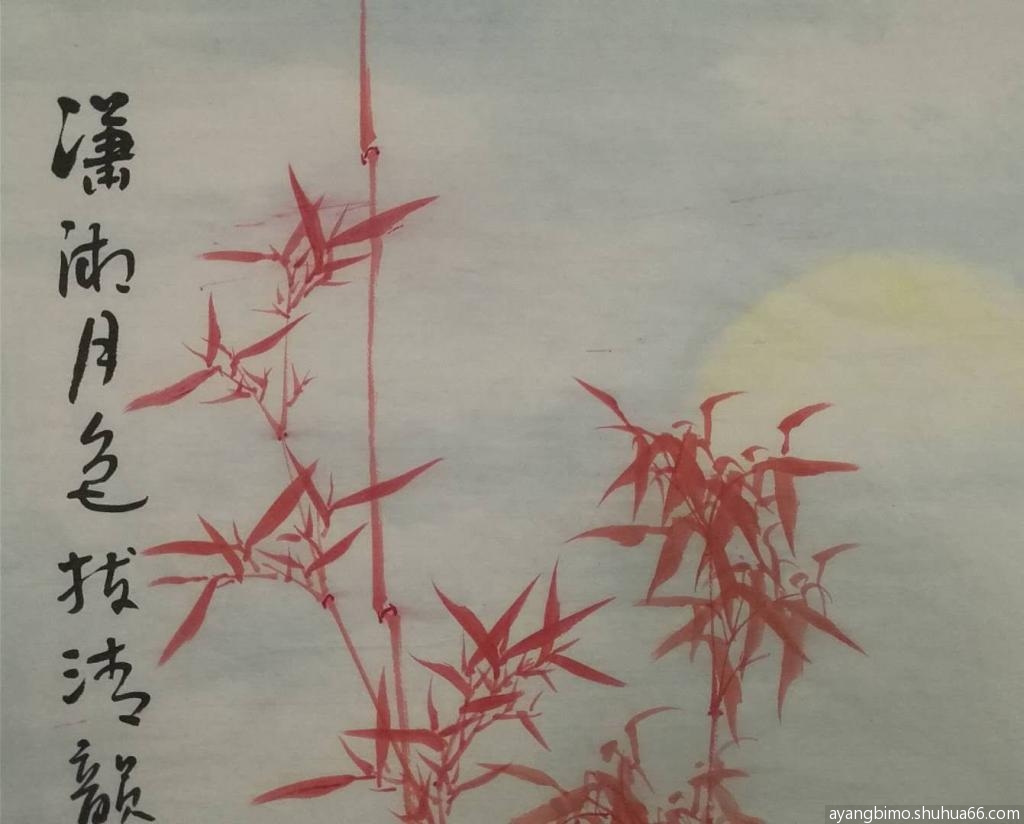 潇湘月色拔清韻
ayangbimo.shuhua66.com